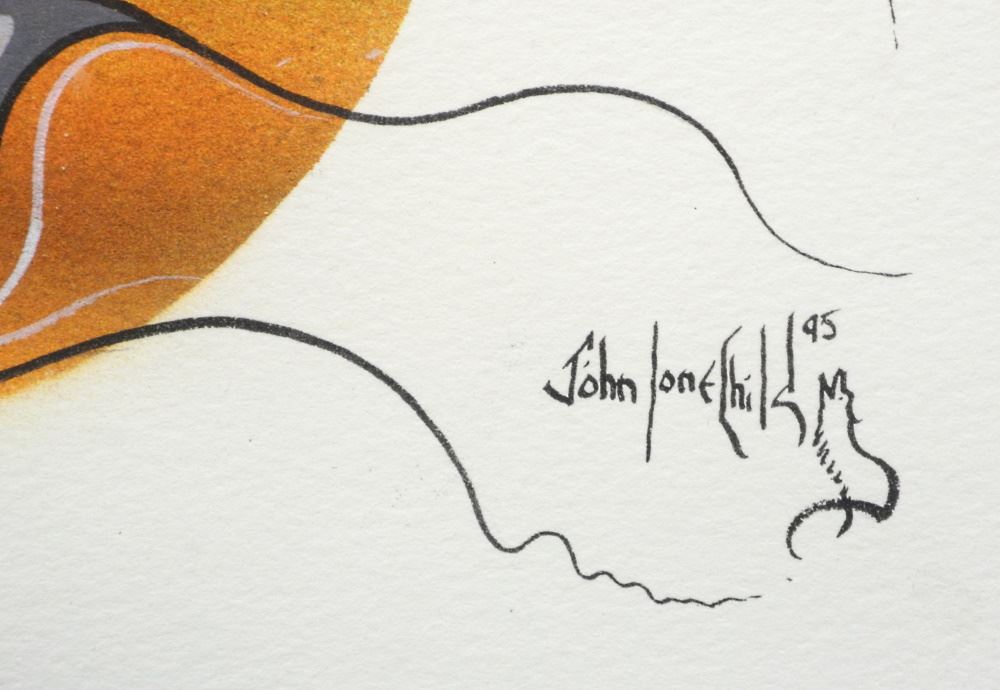 John Lone Child 95